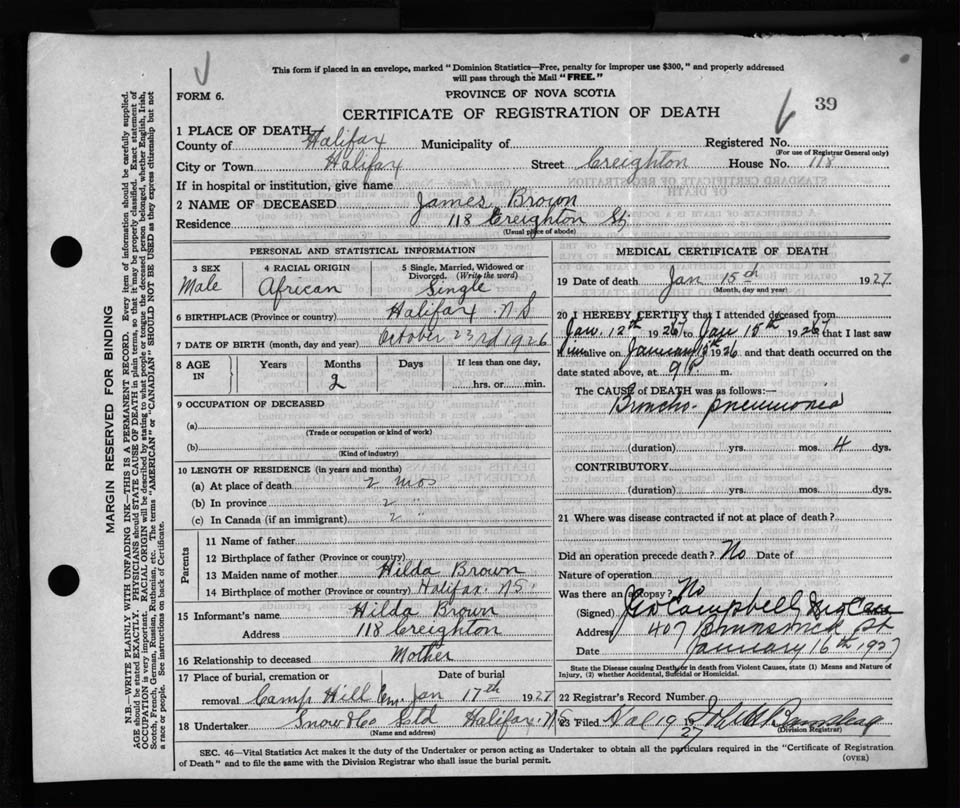 This form if placed in an envelope, marked "Dominion Statistics—Free, penalty for improper use $300," and properly addressed
will pass through the Mail "FREE."
FORM 6.
PROVINCE OF NOVA SCOTIA
39
CERTIFICATE OF REGISTRATION OF DEATH
1 PLACE OF DEATH
County of Halifax Municipality of Registered No.
(For use of Registrar General only)
City or Town Halifax Street Creighton House No. 118
If in hospital or institution, give name
2 NAME OF DECEASED James Brown
Residence 118 Creighton St,
(Usual place of abode)
PERSONAL AND STATISTICAL INFORMATION
3 SEX 4 RACIAL ORIGIN 5 Single, Married, Widowed or
Divorced. (Write the word)
Male African Single
6 BIRTHPLACE (Province or country) Halifax N S
7 DATE OF BIRTH (month, day and year) October 23rd 1926
8 AGE IN Years Months Days If less than one day,
2 hrs. or min.
9 OCCUPATION OF DECEASED
(a)
(Trade or occupation or kind of work)
(b)
(Kind of industry)
10 LENGTH OF RESIDENCE (in years and months)
(a) At place of death 2 mos
(b) In province 2 "
(c) In Canada (if an immigrant) 2 "
Parents
11 Name of father
12 Birthplace of father (Province or country)
13 Maiden name of mother Hilda Brown
14 Birthplace of mother (Province or country) Halifax. N S.
15 Informant's name Hilda Brown
Address 118 Creighton
16 Relationship to deceased Mother
17 Place of burial, cremation or Date of burial
removal Camp Hill Cem Jan 17th 1927
18 Undertaker Snow & Co Ltd Halifax. N S
(Name and address)
MEDICAL CERTIFICATE OF DEATH
19 Date of death Jan 15th 1927
(Month, day and year)
20 I HEREBY CERTIFY that I attended deceased from
Jan. 12th 1926 to Jan 15th 1926 that I last saw
him alive on January 15 1926 and that death occurred on the
date stated above, at 9 P. m.
The CAUSE of DEATH was as follows:—
Broncho-pneumonia
(duration) yrs. mos. 4 dys.
CONTRIBUTORY
(duration) yrs. mos. dys.
21 Where was disease contracted if not at place of death?
Did an operation precede death? No Date of
Nature of operation
Was there an autopsy? No
(Signed) Campbell
Address 407 Brunswick St
Date January 16th 1927
State the Disease causing Death, or in death from Violent Causes, state (1) Means and Nature of
Injury, (2) whether Accidental, Suicidal or Homicidal.
22 Registrar's Record Number
23 Filed 19 27
(Division Registrar)
SEC. 46—Vital Statistics Act makes it the duty of the Undertaker or person acting as Undertaker to obtain all the particulars required in the "Certificate of Registration
of Death" and to file the same with the Division Registrar who shall issue the burial permit.
(OVER)
MARGIN RESERVED FOR BINDING
N.B.—WRITE PLAINLY WITH UNFADING INK—THIS IS A PERMANENT RECORD. Every item of information should be carefully supplied.
AGE should be stated EXACTLY. PHYSICIANS should STATE CAUSE OF DEATH in plain terms, so that it may be properly classified. Exact statement of
OCCUPATION is very important. RACIAL ORIGIN will be described by stating to what people or tongue the deceased person belonged, whether English, Irish,
Scotch, French, German, Russian, Ruthenian, etc. The terms "AMERICAN" or "CANADIAN" SHOULD NOT BE USED as they express citizenship but not
a race or people. See instructions on back of Certificate.